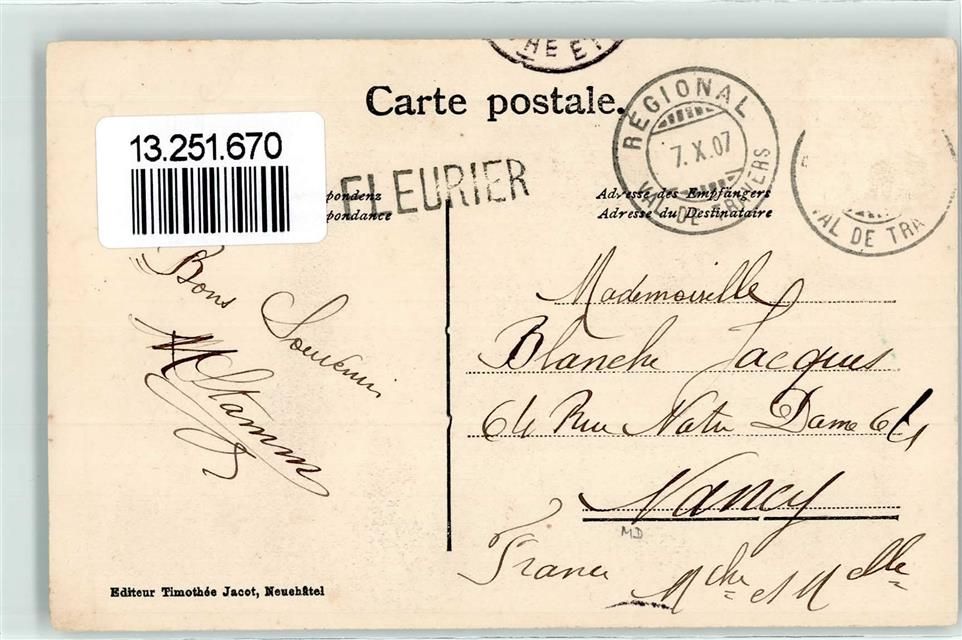 HE ET
Carte postale.
RÉGIONAL
7.X.07
VAL DE TRAVERS
VAL DE TRA
13.251.670
FLEURIER
pondenz
pondance
Adresse des Empfängers
Adresse du Destinataire
Bons
Souvenir
Stamm
Mademoiselle
Blanche Jacques
64 Rue Notre Dame 64
Nancy
MD
France
Mthe et Mlle
Editeur Timothée Jacot, Neuchâtel